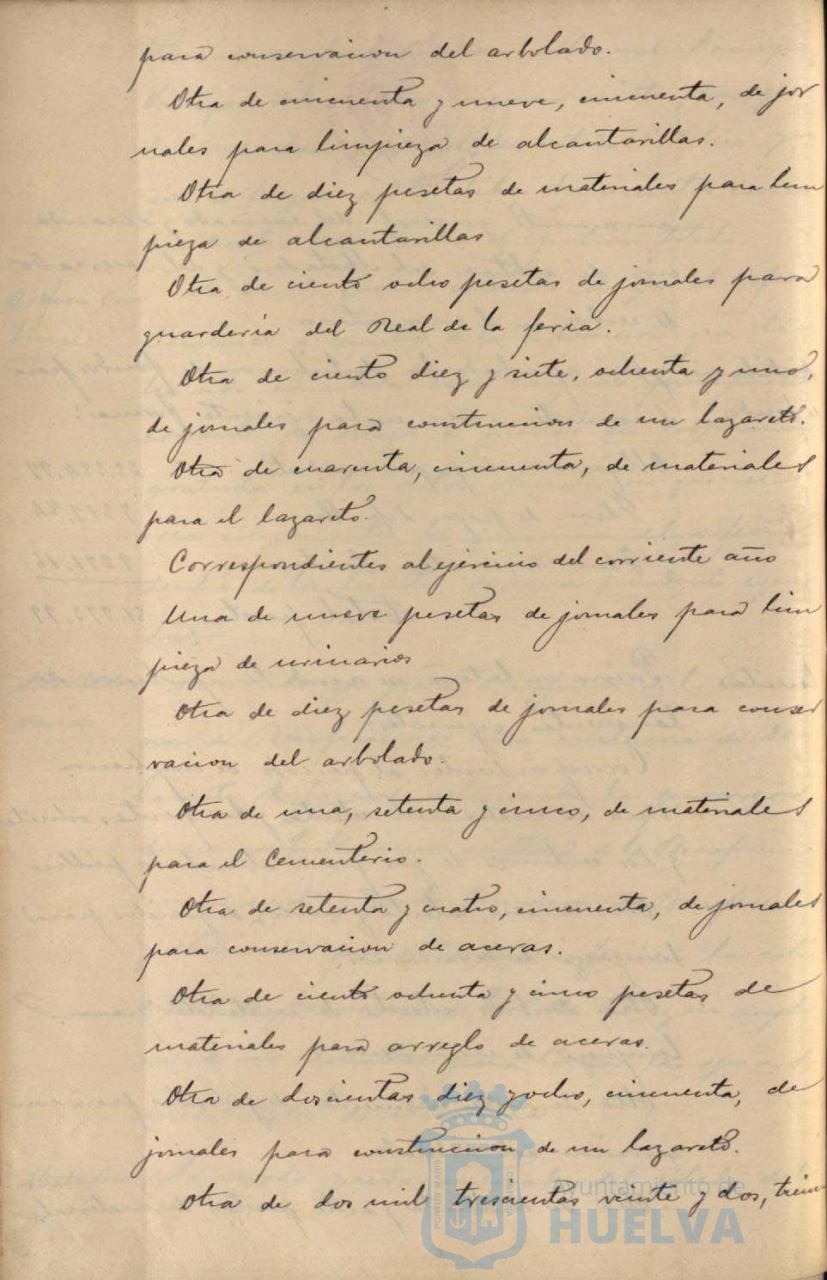 para conservacion del arbolado.
Otra de cincuenta y nueve, cincuenta, de jor
nales para limpieza de alcantarillas.
Otra de diez pesetas de materiales para lim
pieza de alcantarillas
Otra de ciento ocho pesetas de jornales para
guardería del Real de la feria.
Otra de ciento diez y siete, ochenta y uno,
de jornales para construccion de un lazareto.
Otra de cuarenta, cincuenta, de materiales
para el lazareto.
Correspondientes al ejercicio del corriente año
Una de nueve pesetas de jornales para lim
pieza de urinarios
Otra de diez pesetas de jornales para conser
vacion del arbolado.
Otra de una, setenta y cinco, de materiales
para el Cementerio.
Otra de setenta y cuatro, cincuenta, de jornales
para conservacion de aceras.
Otra de ciento ochenta y cinco pesetas de
materiales para arreglo de aceras.
Otra de doscientas diez y ocho, cincuenta, de
jornales para construccion de un lazareto.
Otra de dos mil trescientas veinte y dos, trein
Ayuntamiento de
HUELVA